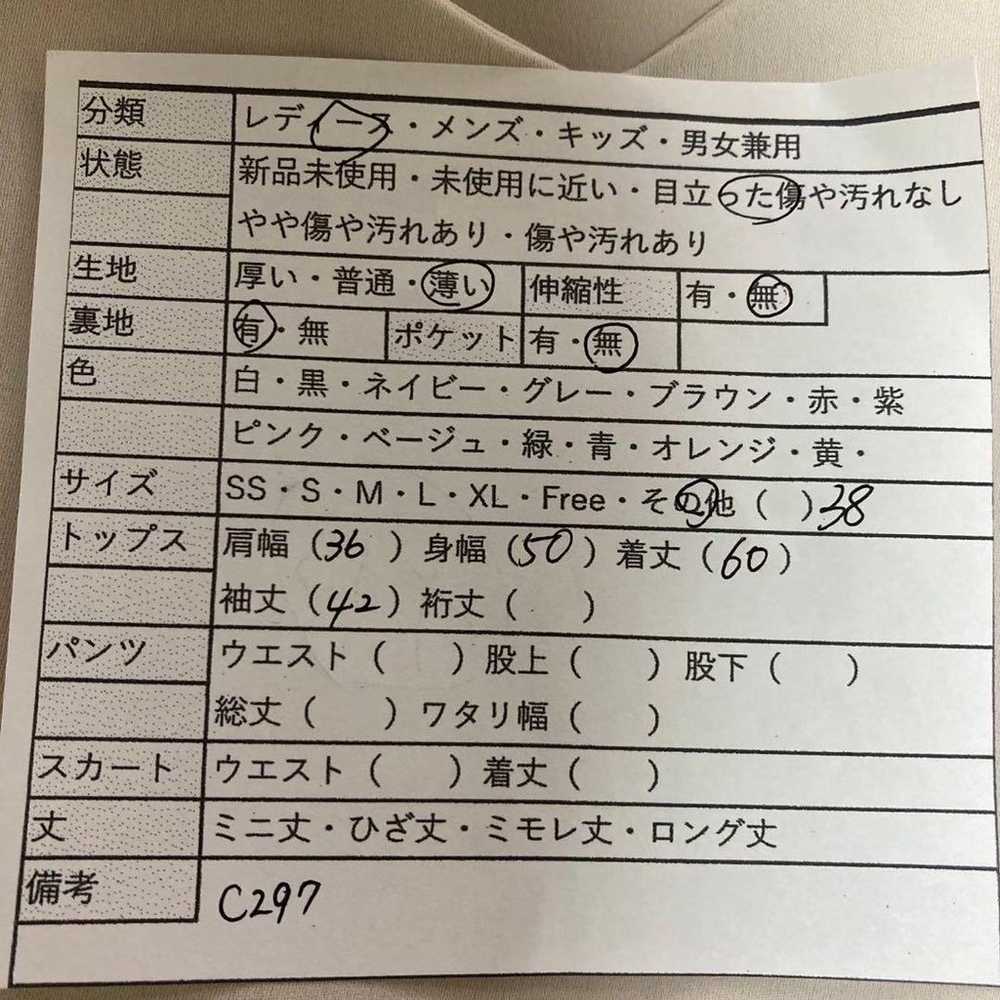 分類 レディース・メンズ・キッズ・男女兼用
状態 新品未使用・未使用に近い・目立った傷や汚れなし
やや傷や汚れあり・傷や汚れあり
生地 厚い・普通・薄い 伸縮性 有・無
裏地 有・無 ポケット 有・無
色 白・黒・ネイビー・グレー・ブラウン・赤・紫
ピンク・ベージュ・緑・青・オレンジ・黄・
サイズ SS・S・M・L・XL・Free・その他（ ）38
トップス 肩幅（36 ）身幅（50 ）着丈（60 ）
袖丈（42 ）裄丈（ ）
パンツ ウエスト（ ）股上（ ）股下（ ）
総丈（ ）ワタリ幅（ ）
スカート ウエスト（ ）着丈（ ）
丈 ミニ丈・ひざ丈・ミモレ丈・ロング丈
備考 C297